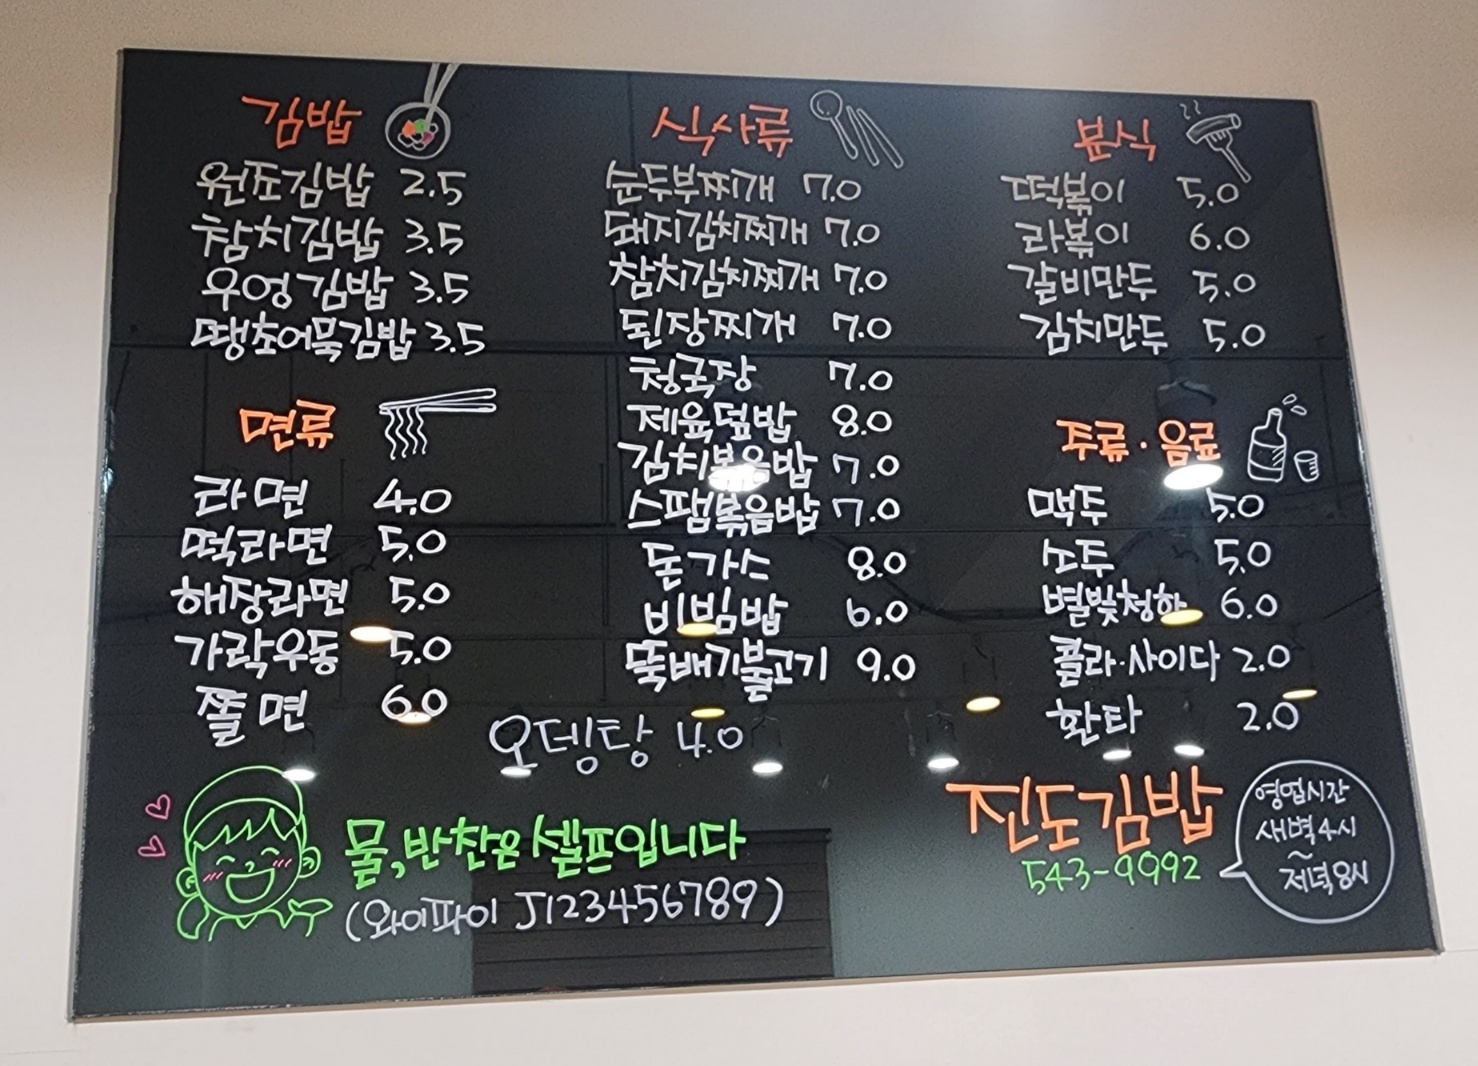 김밥
원조김밥 2.5
참치김밥 3.5
우엉김밥 3.5
땡초어묵김밥 3.5
면류
라면 4.0
떡라면 5.0
해장라면 5.0
가락우동 5.0
쫄면 6.0
식사류
순두부찌개 7.0
돼지김치찌개 7.0
참치김치찌개 7.0
된장찌개 7.0
청국장 7.0
제육덮밥 8.0
김치볶음밥 7.0
스팸볶음밥 7.0
돈가스 8.0
비빔밥 6.0
뚝배기불고기 9.0
오뎅탕 4.0
분식
떡볶이 5.0
라볶이 6.0
갈비만두 5.0
김치만두 5.0
주류·음료
맥주 5.0
소주 5.0
별빛청하 6.0
콜라·사이다 2.0
환타 2.0
물,반찬은 셀프입니다
(와이파이 J123456789)
진도김밥
543-9992
영업시간
새벽4시
~
저녁8시